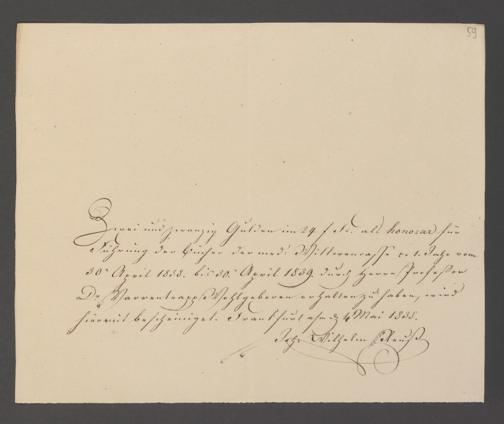 59
Zwei und zwanzig Gulden im 24 f als honorar für
Führung der Bücher der med. Wittwencasse v. 1. Jahr vom
30n April 1838. bis 30. April 1839. durch Herrn Professor
Dr. Varrentrapp Wohlgeboren erhalten zu haben, wird
hiermit bescheinigt. Frankfurt a/m 4 Mai 1838.
Wilhelm